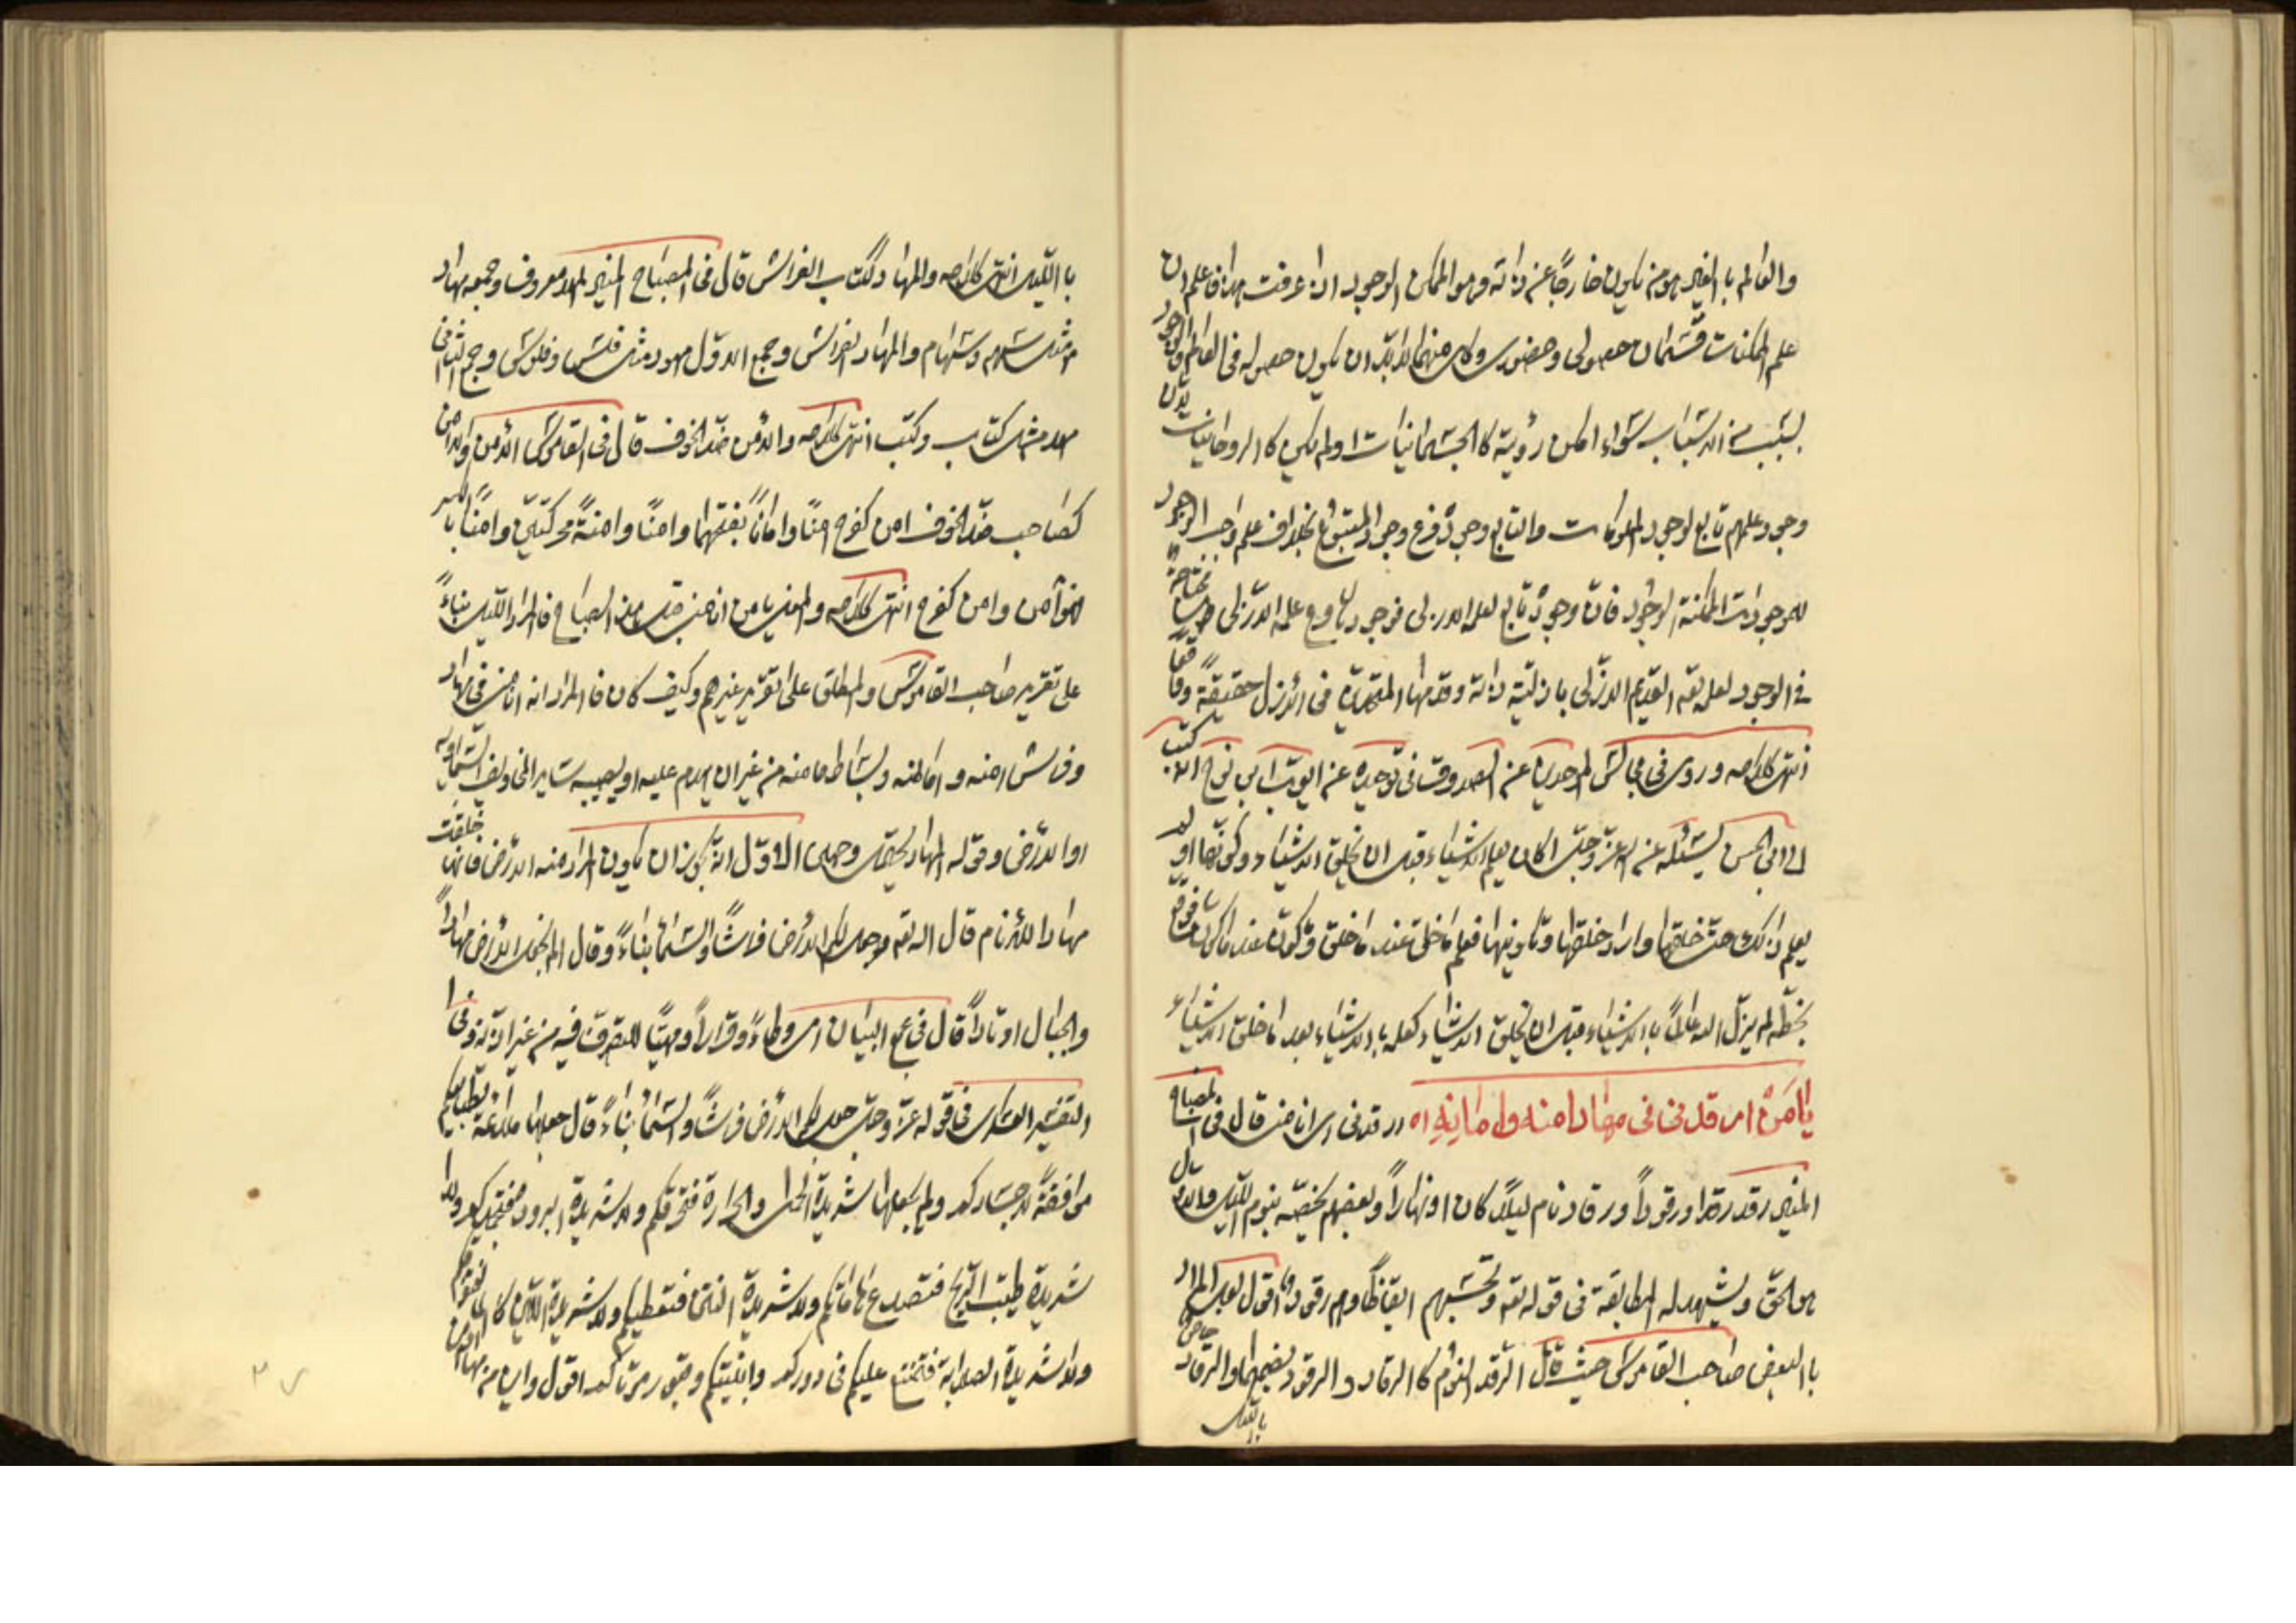 والعالم بالغير هو من يكون خارجًا عن ذاته وهو الممكن الوجود اذا عرفت هذا فاعلم ان
علم الممكنات قسمان حصولى وحضورى وكل منهما لابدّ ان يكون حصوله فى العالم الوجود
بسبب من الاسباب سواء امكن رؤيته كالجسمانيات او لم يكن كالروحانيات
وجود علمهم تابع لوجود المعلومات والتابع وجوده فرع وجود المتبوع بخلاف علم واجب الوجود
للموجودات الممكنة الوجود فانّ وجوده تابع لعلمه الازلى فوجودها فرع علمه الازلى محتاجة
فى الوجود لعلمه تعه القديم الازلى بازلية ذاته وقدمها المتحدة فى الازل حقيقة
انتهى كلامه وروى فى مجالس الموحدين عن الصدوق فى توحيده عن ايوب ابن نوح انه كتب
الى ابى الحسن يسئله عن الله عزّ وجلّ اكان يعلم الاشياء قبل ان يخلق الاشياء وكوّنها او لم
يعلم ذلك حتى خلقها واراد خلقها وتكوينها فعلم ما خلق عند ما خلق وما كوّن عند ما كوّن فوقع
بخطّه لم يزل الله عالمًا بالاشياء قبل ان يخلق الاشياء كعلمه بالاشياء بعد ما خلق الاشياء
يا من ارقدنى فى مهاد امنه وامانه اه ارقدنى اى انامنى قال فى المصباح
المنير رقد رقدا ورقودًا ورقادا نام ليلًا كان او نهارًا وبعضهم يخصّه بنوم الليل والاول
هو الحق ويشهد له المطابقة فى قوله تعه وتحسبهم ايقاظًا وهم رقود اقول لعل المراد
بالبعض صاحب القاموس حيث قال الرقد النوم كالرقاد والرقود بضمهما والرقاد خاص
بالليل
بالليل انتهى كلامه والمهاد ككتاب الفراش قال فى المصباح المنير المهد معروف وجمعه مهاد
مثل سهم وسهام والمهاد الفراش وجمع الاوّل مهود مثل فلس وفلوس وجمع الثانى
مهد مثل كتاب وكتب انتهى كلامه والامن ضدّ الخوف قال فى القاموس الامن والامن
كصاحب ضدّ الخوف امن كفرح امنًا وامانًا بفتحهما وامنًا وامنةً محركتين وامنًا بالكسر
فهو امن وامن كفرح انتهى كلامه والمعنى يا من انامنى قبل هذا الصباح فالمراد الليل بناءً
على تقرير صاحب القاموس والمطلق على تقرير غيرهم وكيف كان فالمراد انه انامنى فى مهاد
وفراش امنه وامانه وبساط مامنه من غير ان يهدم عليه او يصيبه ساير المخاويف السماوية
او الارضى وقوله المهاد يحتمل وجهين الاوّل انه يجوز ان يكون المراد منه الارض فانها خلقت
مهادا للانام قال الله تعه وجعل لكم الارض فراشًا والسماء بناءً وقال الم نجعل الارض مهادًا
والجبال اوتادًا قال فى مجمع البيان اى وطاءً وقرارًا ومهيّئًا للتصرف فيه من غير اذية وفى
التفسير العسكرى فى قوله عزّ وجلّ جعل لكم الارض فراشًا والسماء بناءً قال جعلها ملائمة لطبايعكم
موافقةً لاجسادكم ولم يجعلها شديدة الحمى والحرارة فتحرقكم ولا شديدة البرودة فتجمدكم ولا
شديدة طيب الريح فتصدع هاماتكم ولا شديدة النتن فتعطبكم ولا شديدة اللين كالماء فتغرقكم
ولا شديدة الصلابة فتمتنع عليكم فى دوركم وابنيتكم وقبور موتاكم اقول